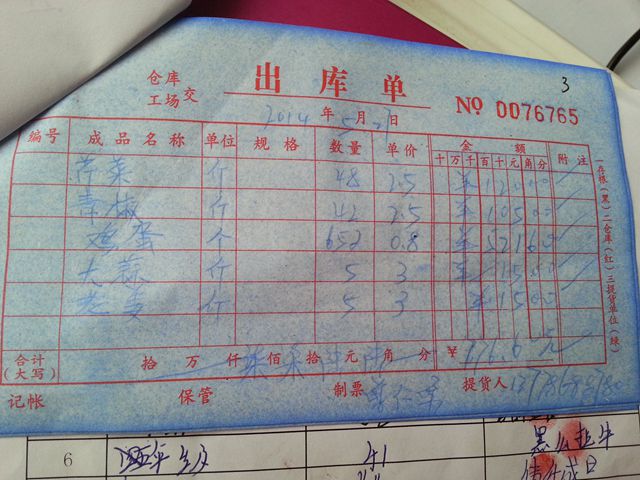 出库单
3
仓库
工场交
№ 0076765
2014年5月 日
编号 成品名称 单位 规格 数量 单价 金额 附注
十万千百十元角分
芹菜 斤 48 2.5 ¥12000
青椒 斤 42 2.5 ¥10500
鸡蛋 个 652 0.8 ¥52160
大蒜 斤 5 3 ¥1500
老姜 斤 5 3 ¥1500
合计
(大写) 拾 万 仟 柒佰 柒拾 陆元 陆角 分 ¥776.6元
记帐 保管 制票 提货人
一存根(黑)二仓库(红)三提货单位(绿)
6